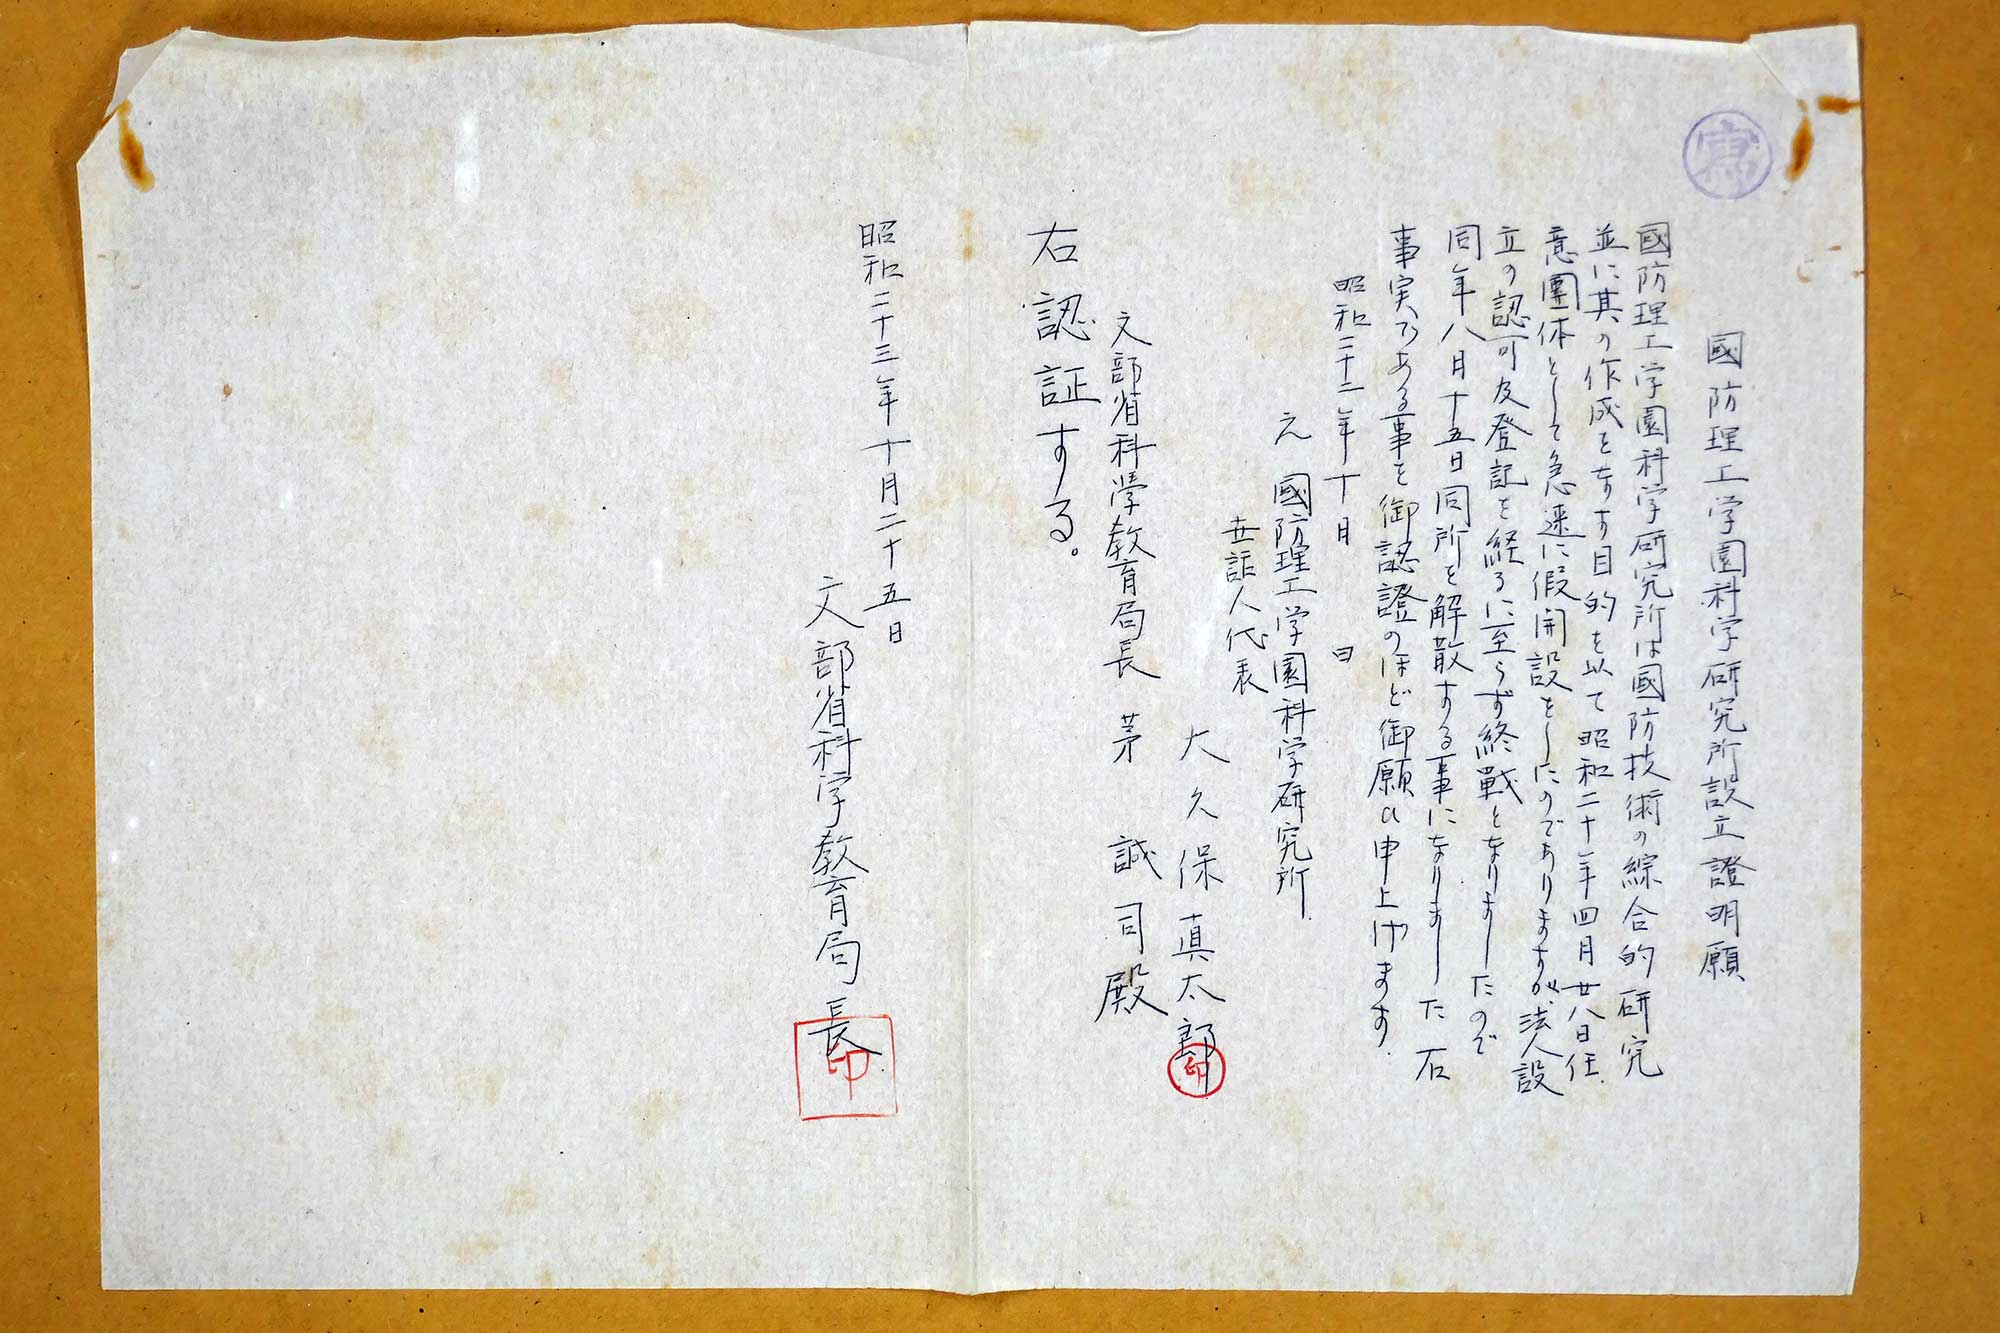 寫
國防理工学園科学研究所設立證明願
國防理工学園科学研究所は國防技術の綜合的研究
並に其の作成をなす目的を以て昭和二十年四月廿八日任
意團体として急速に假開設をしたのでありますが、法人設
立の認可及登記を経るに至らず終戰となりましたので
同年八月十五日同所を解散する事になりました右
事実である事を御認證のほど御願ひ申上げます.
昭和二十二年十月　日
元 國防理工学園科学研究所.
世話人代表
大久保真太郎 印
文部省科學教育局長 茅 誠司殿
右認証する。
昭和二十三年十月二十五日
文部省科学教育局長 印